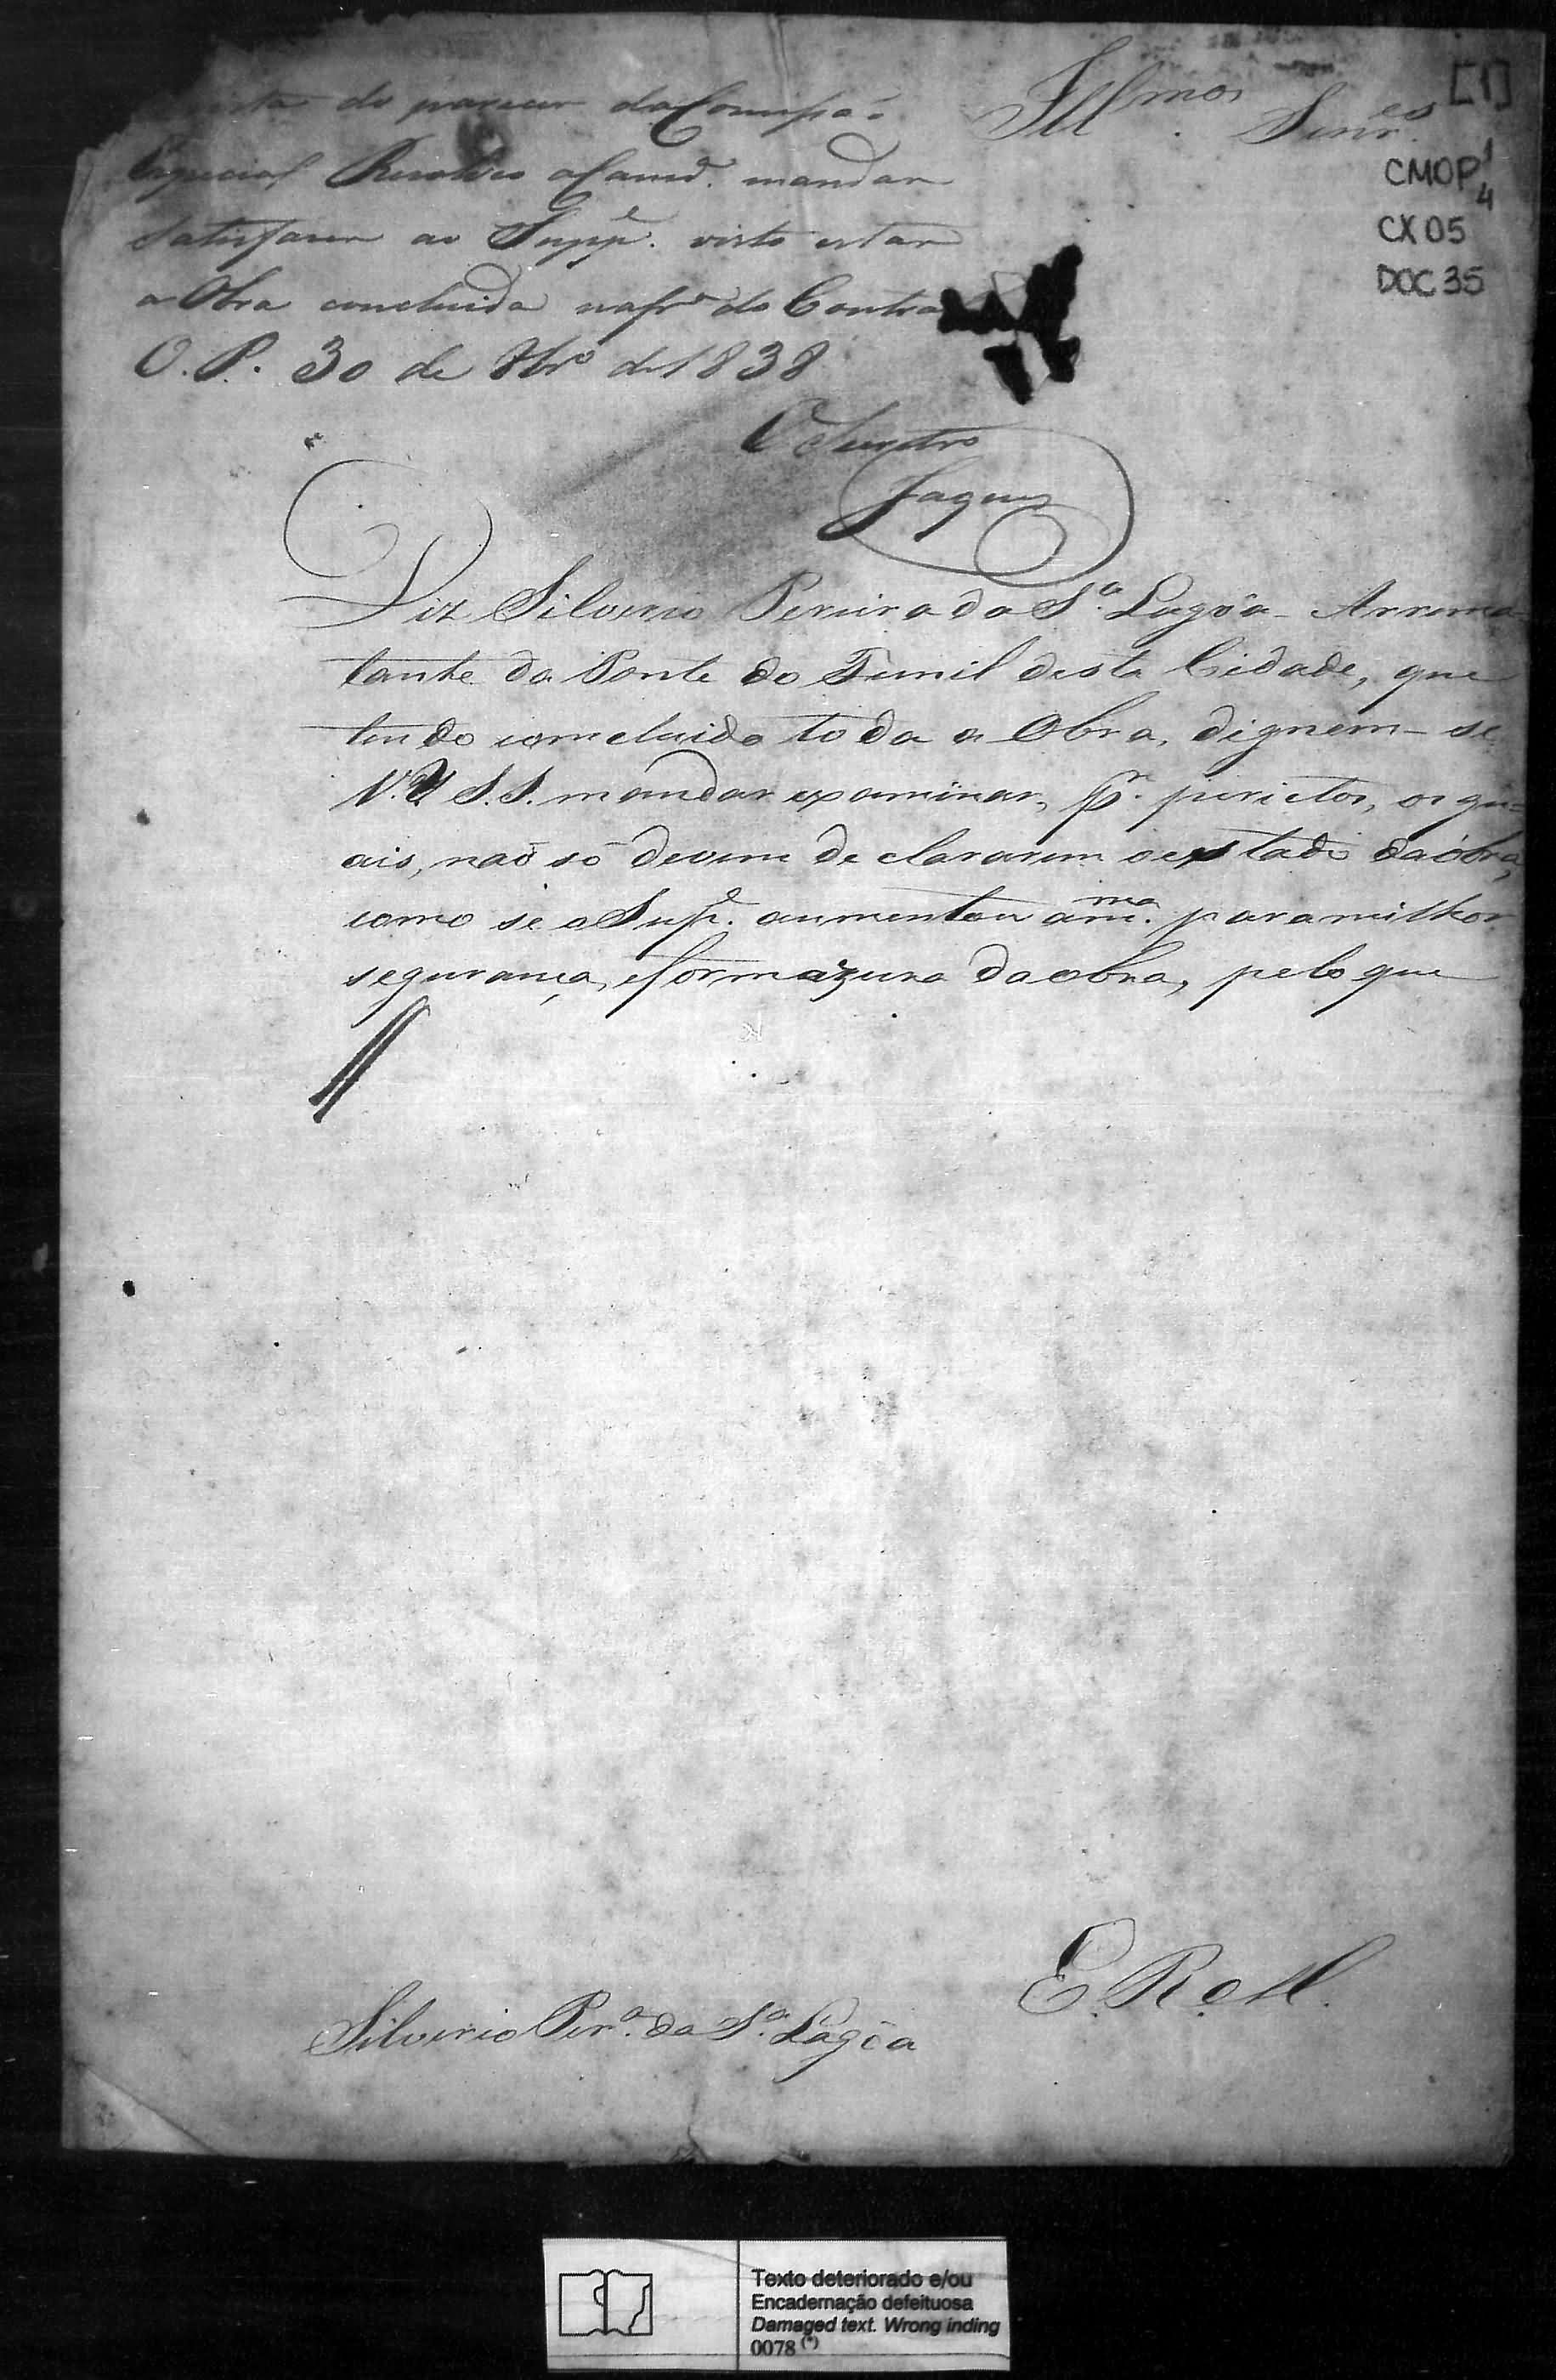 vista do parecer da Comissaõ
Especial Resolveo a Camrª. mandar
satisfazer ao Suppe. visto estar
a Obra concluida na frª do Contra
O. P. 30 de 8brº de 1838
O Secretro
Jaques
Illmos. Senres.
[1]
CMOP 1
4
CX 05
DOC 35
Diz Silverio Pereira da Sª. Lagôa Arrema-
tante da Ponte do Funil desta Cidade, que
tendo comcluido toda a Obra, dignem-se
V.V S.S. mandar examinar, pr. perictos, os qu-
ais, naõ só devem declararem o estado da óbra,
como se o Supe. aumentou a mma. para milhor
segurança, e formozura da obra, pelo que
E. R. Mce.
Silverio Perª. da Sª. Lagôa
Texto deteriorado e/ou
Encadernação defeituosa
Damaged text. Wrong inding
0078 (*)